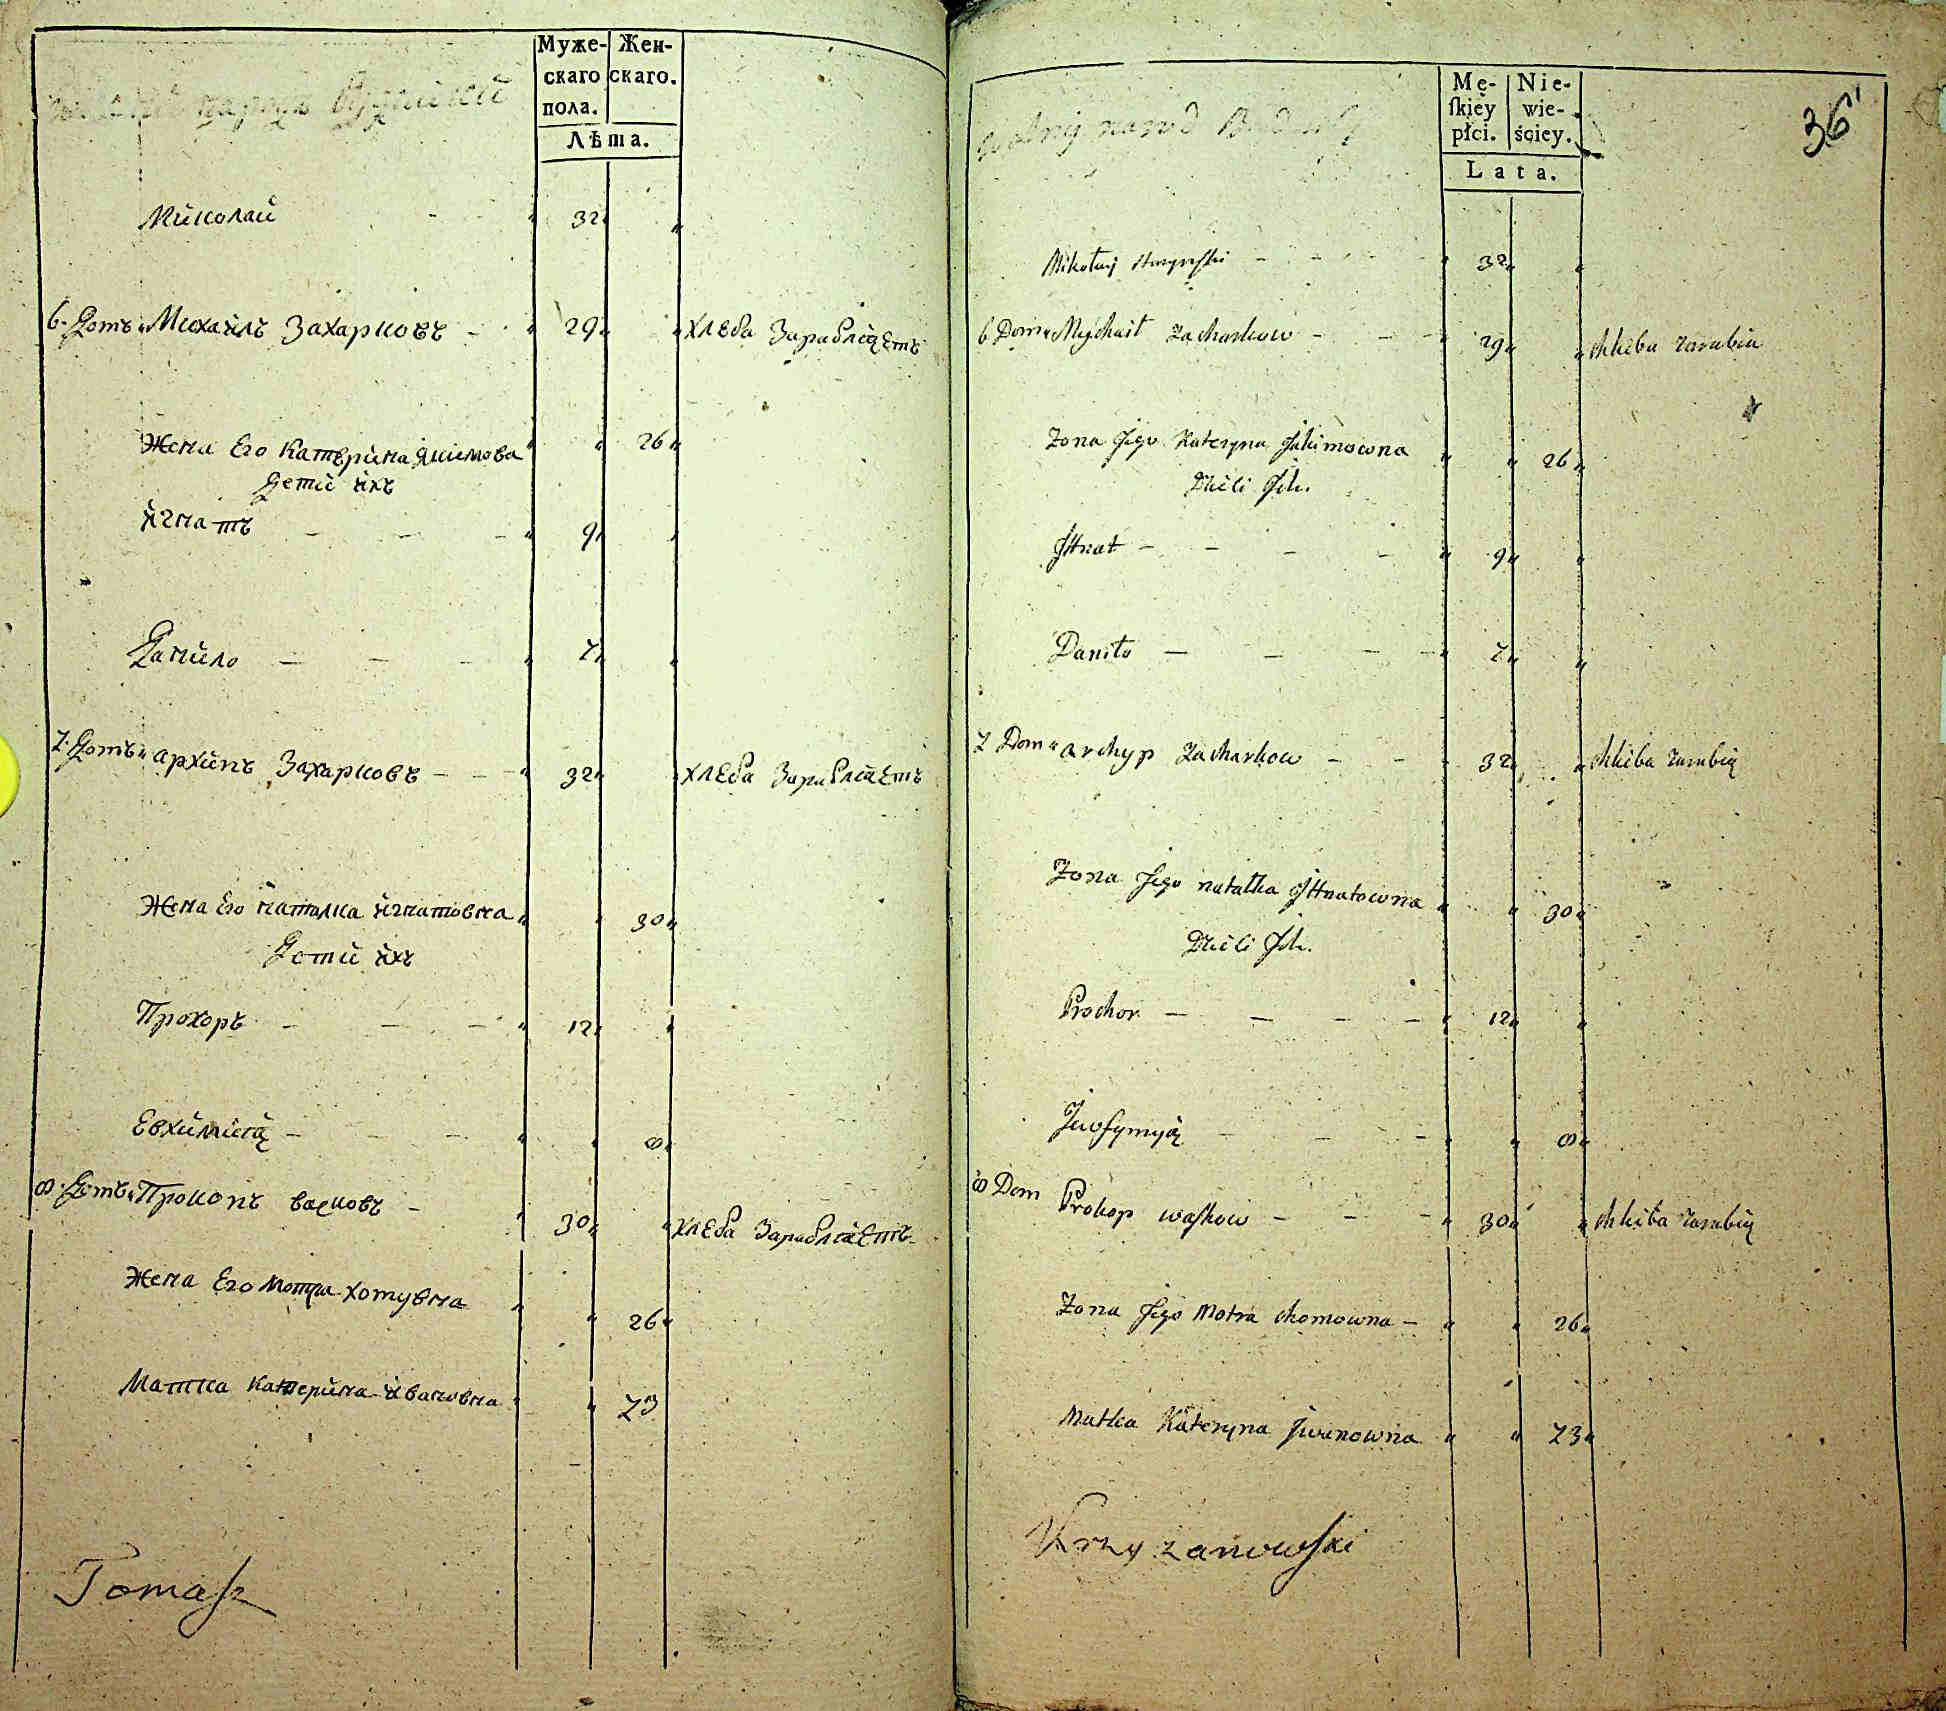 Муже- Жен-
скаго скаго.
пола.
Лѣта.
Миколай - " 32 "
6. Домъ " Михайлъ Захарковъ - " 29 " хлеба Зарабляетъ
Жена Его Катерина Якимова " " 26 "
Дети ихъ
Игнатъ - - - " 9 "
Данило - - - " 7 "
7. Домъ " Архипъ Захарковъ - - " 32 " хлеба Зарабляетъ
Жена Его Наталка Игнатовна " " 30 "
Дети ихъ
Прохоръ - - - " 12 "
Евхимия - - - " " 8 "
8. Домъ " Прокопъ васковъ - " 30 " хлеба Зарабляетъ
Жена Его Мотра хомувна " " 26 "
Матка Катерина Ивановна " " 73
Tomasz
Mę- Nie-
ſkiey wie-
płci. ściey.
Lata.
36
Mikołay - - - - " 32 "
6 Dom " Mychaił Zacharkow - - - " 29 " chleba zarabia
Żona Jego Kateryna Jakimowna " " 26 "
Dzieci Ich.
Ihnat - - - - " 9 "
Daniło - - - - " 7 "
7 Dom " Archyp Zacharkow - - - 32 " chleba zarabia
Żona Jego natałka Ihnatowna " " 30 "
Dzieci Ich.
Prochor - - - - " 12 "
Jewfymyia - - - " " 8 "
8 Dom Prokop waſkow - - - " 30 " chleba zarabia
Żona Jego Motra chomowna - " " 26 "
Matka Kateryna Jwanowna " " 73 "
Krzyżanowſki